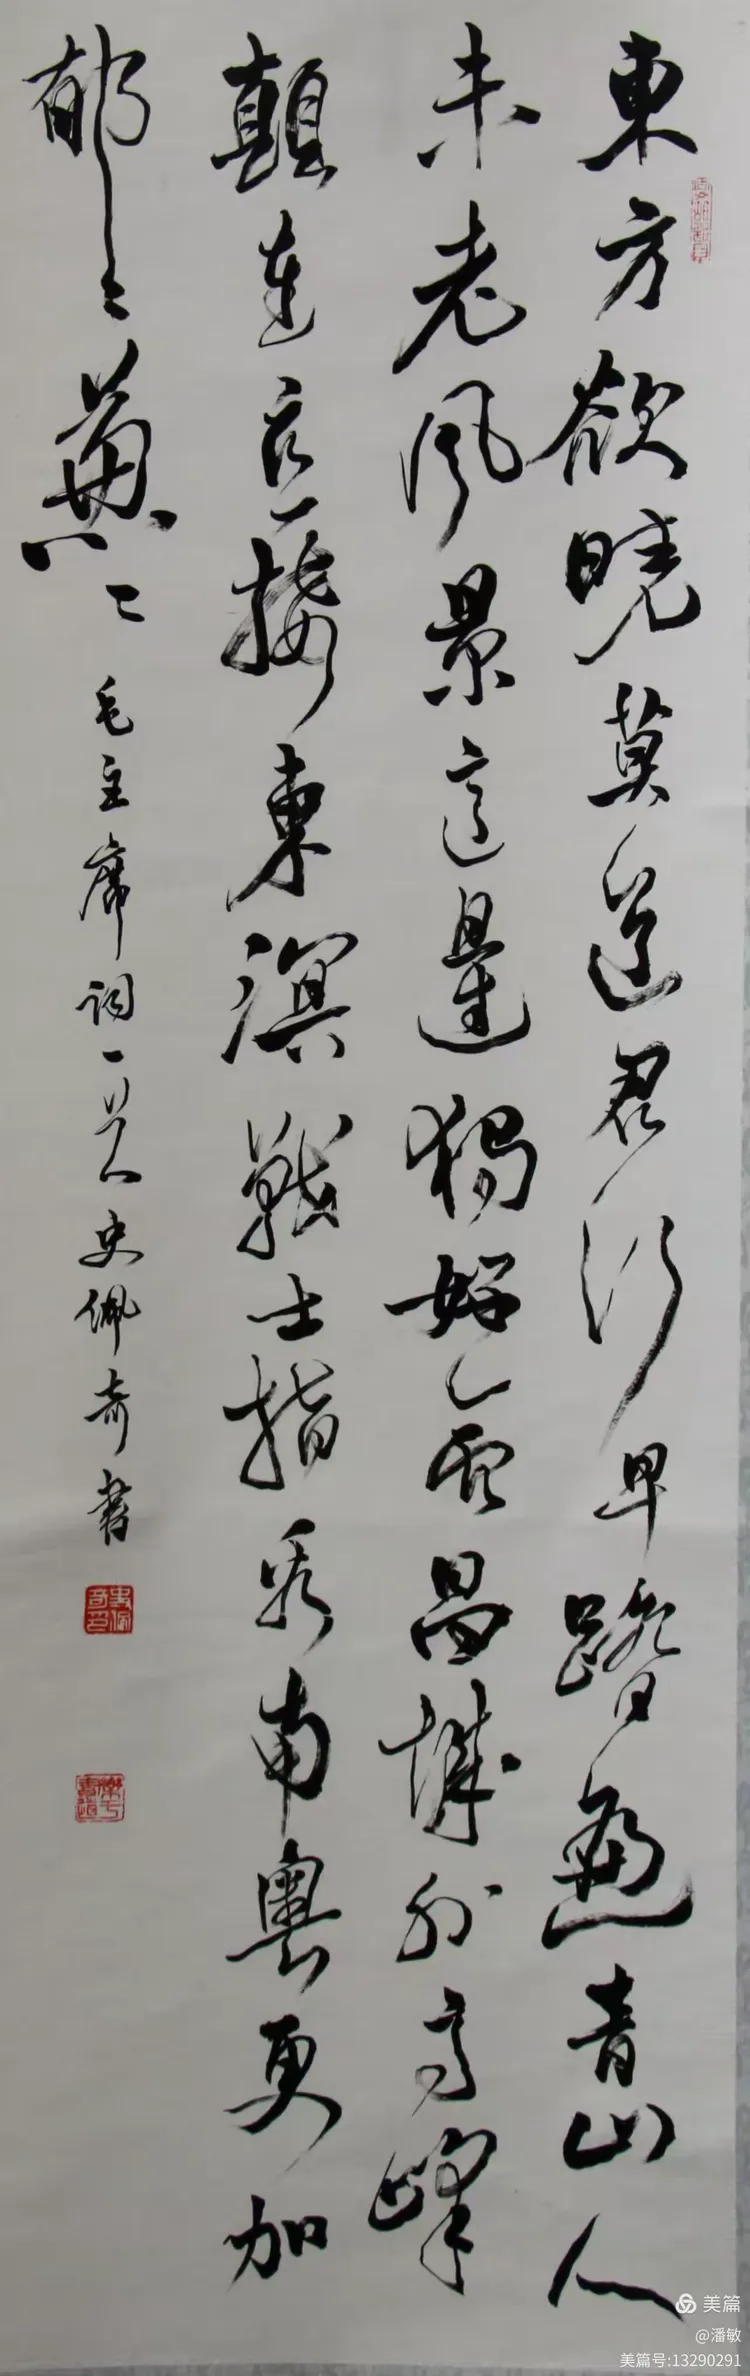 東方欲曉莫道君行早踏遍青山人
未老風景這邊獨好會昌城外高峰
顛連直接東溟戰士指看南粵更加
郁々蔥々 毛主席詞一首 史佩奇書
史佩奇印
美篇
@潘敏
美篇号:13290291